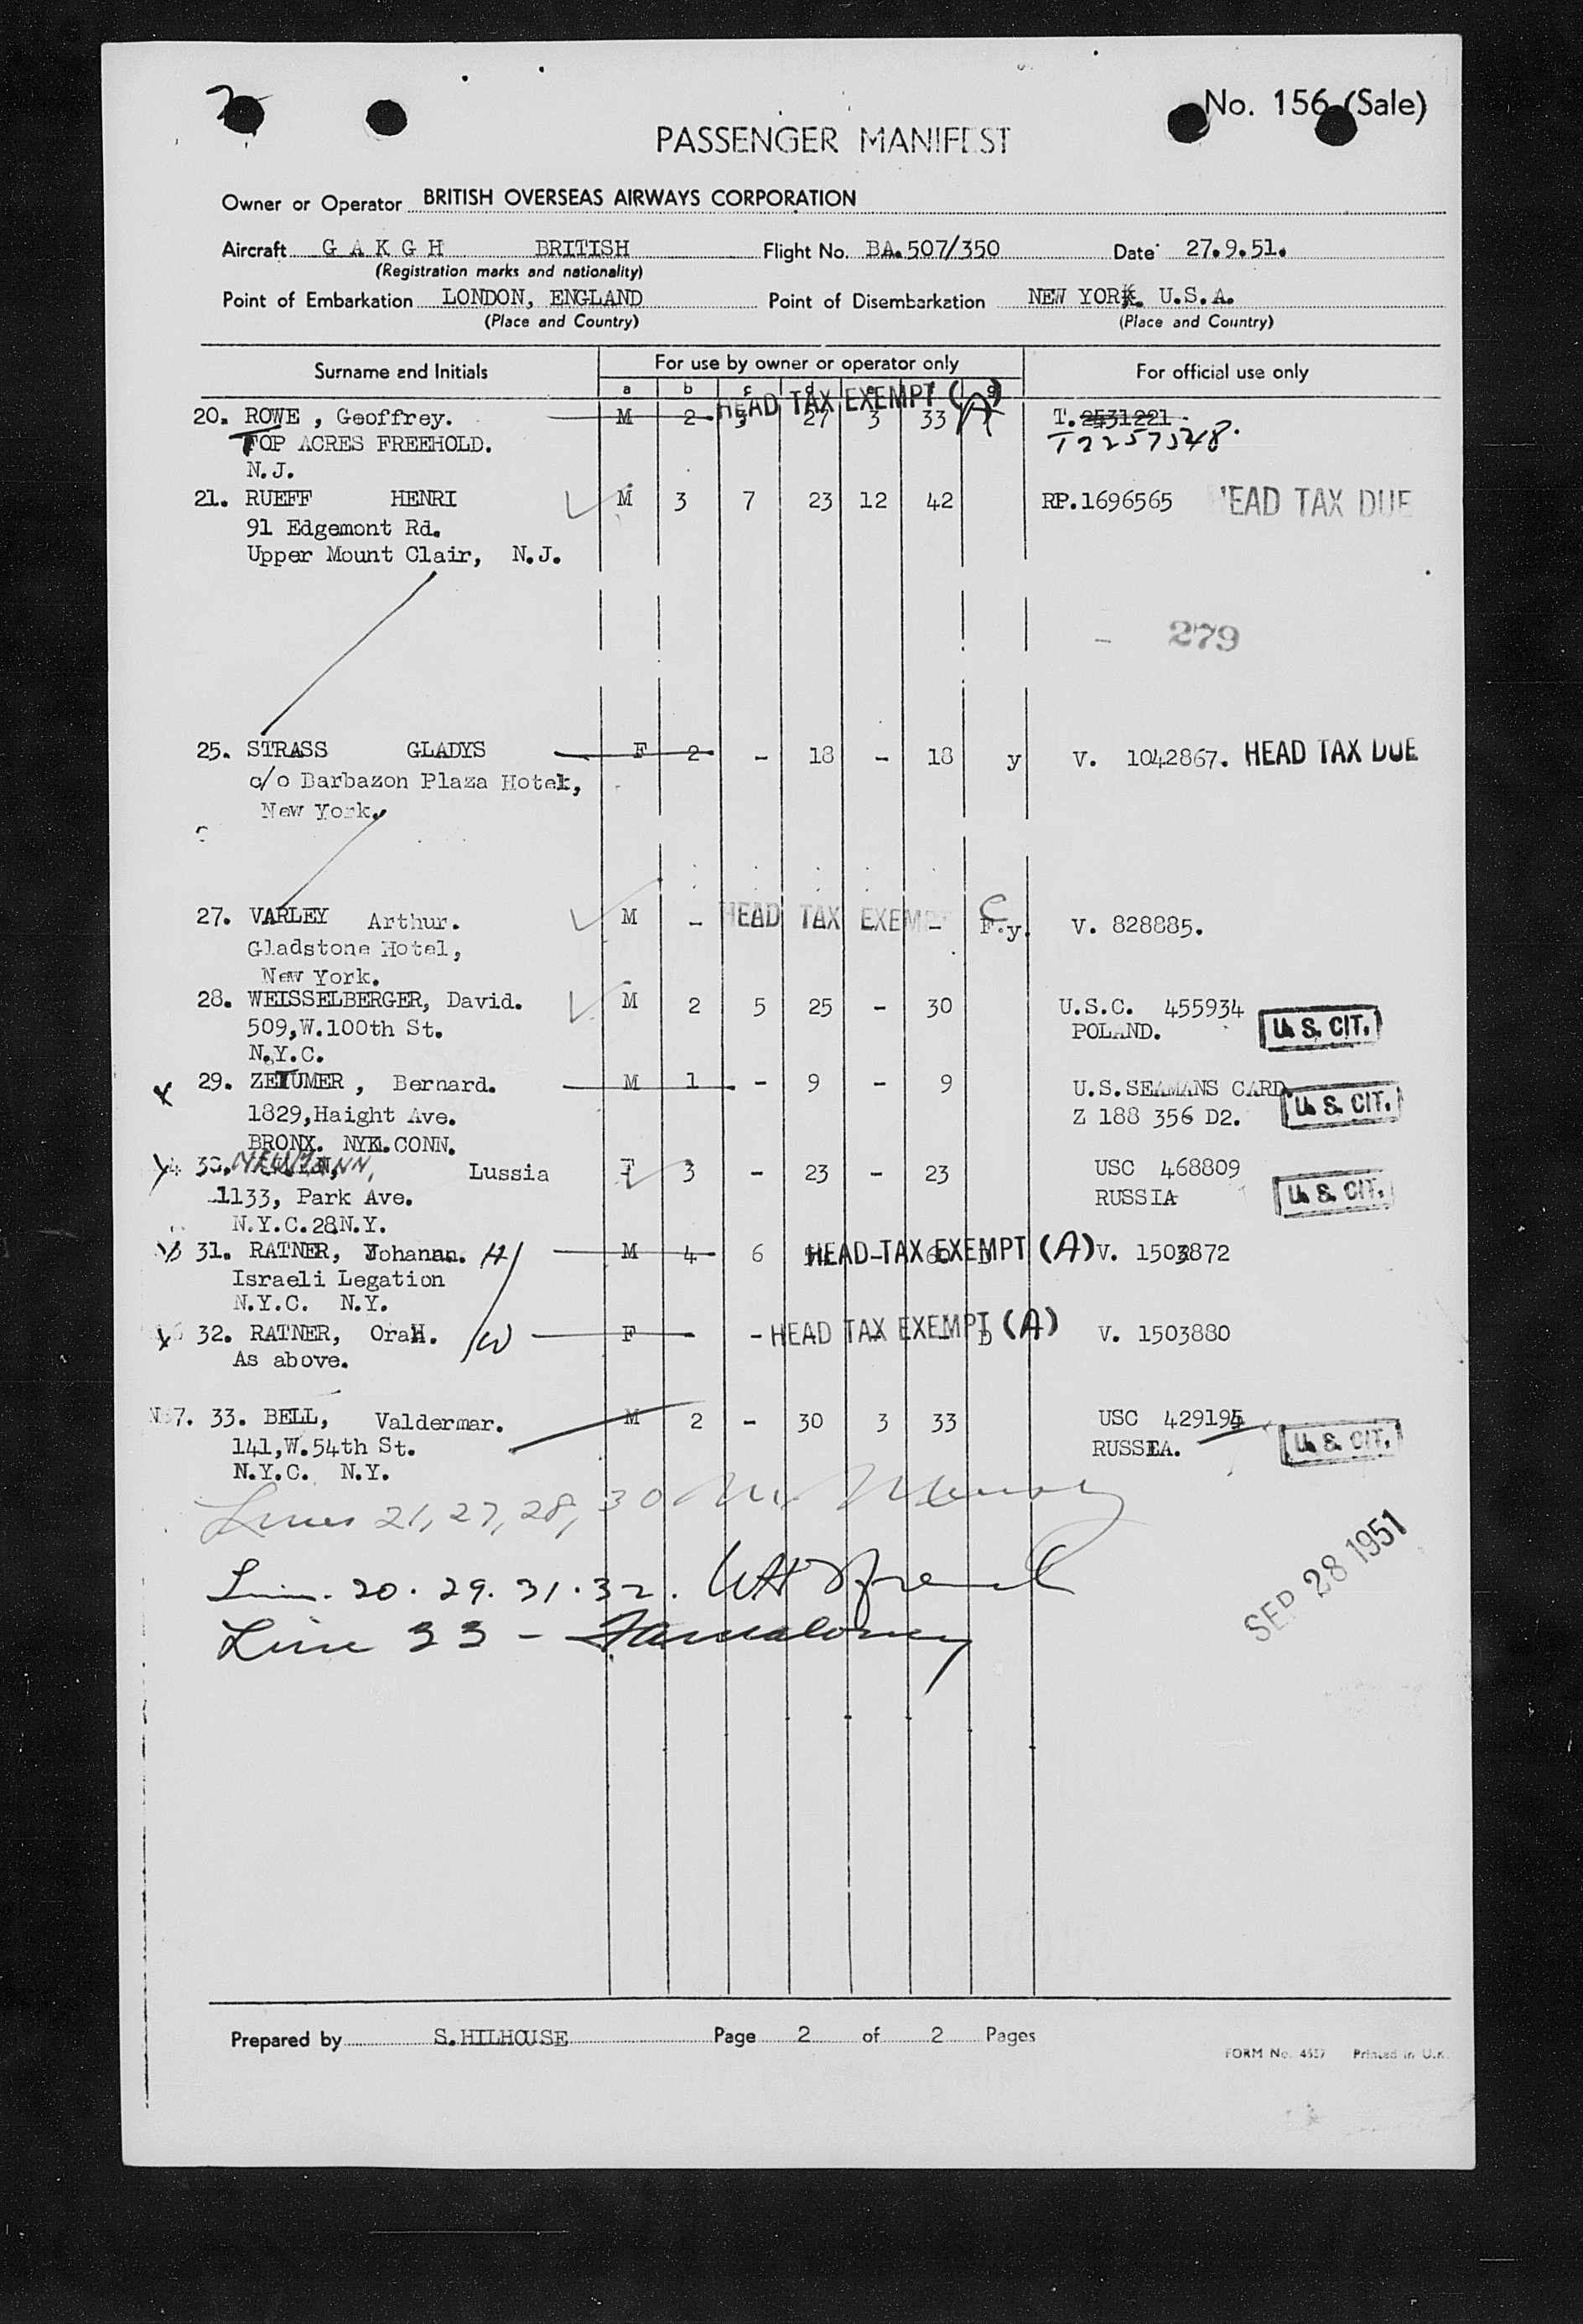 2
No. 156 (Sale)
PASSENGER MANIFEST
Owner or Operator BRITISH OVERSEAS AIRWAYS CORPORATION
Aircraft G A K G H BRITISH Flight No. BA.507/350 Date 27.9.51.
(Registration marks and nationality)
Point of Embarkation LONDON, ENGLAND Point of Disembarkation NEW YORK. U.S.A.
(Place and Country) (Place and Country)
Surname and Initials For use by owner or operator only For official use only
a b c d e g
HEAD TAX EXEMPT (A)
20. ROWE , Geoffrey. M 2 3 27 3 33 T. 2531221.
TOP ACRES FREEHOLD. T2257548.
N.J.
21. RUEFF HENRI M 3 7 23 12 42 RP.1696565 HEAD TAX DUE
91 Edgemont Rd.
Upper Mount Clair, N.J.
- 279
25. STRASS GLADYS F 2 - 18 - 18 y V. 1042867. HEAD TAX DUE
c/o Barbazon Plaza Hotel,
New York.
27. VARLEY Arthur. M - HEAD TAX EXEMPT - C F.y. V. 828885.
Gladstone Hotel,
New York.
28. WEISSELBERGER, David. M 2 5 25 - 30 U.S.C. 455934
509,W.100th St. POLAND. U. S. CIT.
N.Y.C.
29. ZEIUMER , Bernard. M 1 - 9 - 9 U.S.SEAMANS CARD
1829,Haight Ave. Z 188 356 D2. U. S. CIT.
BRONX. NYK.CONN.
30. NEWMANN, Lussia F 3 - 23 - 23 USC 468809
1133, Park Ave. RUSSIA U. S. CIT.
N.Y.C.28N.Y.
31. RATNER, Johanan. H M 4 6 HEAD TAX EXEMPT (A) 60 D V. 1503872
Israeli Legation
N.Y.C. N.Y.
32. RATNER, OraH. W F - - HEAD TAX EXEMPT (A) D V. 1503880
As above.
33. BELL, Valdermar. M 2 - 30 3 33 USC 429194
141,W.54th St. RUSSIA. U. S. CIT.
N.Y.C. N.Y.
Lines 21, 27, 28, 30
Lin. 20. 29. 31. 32.
Line 33 -
SEP 28 1951
Prepared by S.HILHOUSE Page 2 of 2 Pages
FORM No. Printed in U.K.